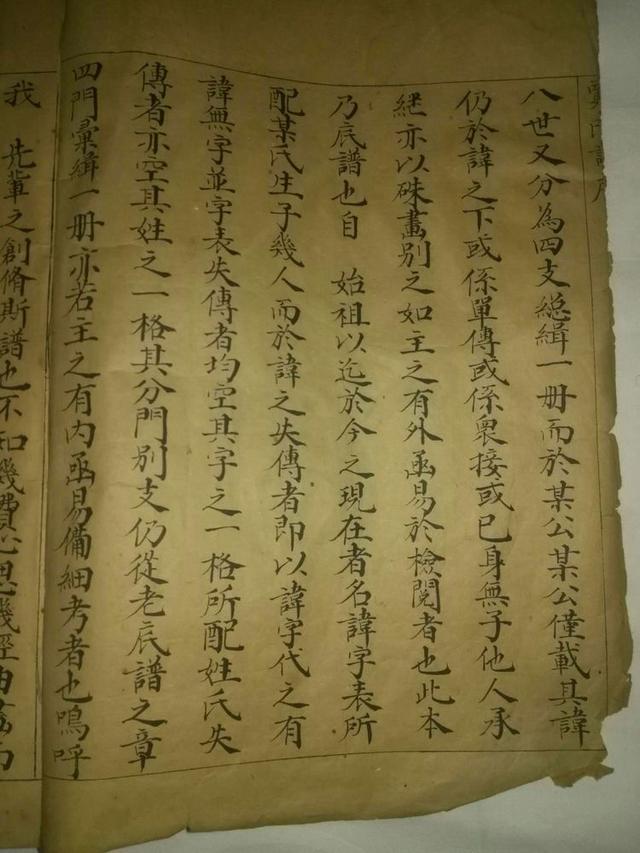 八世又分為四支総緝一册而於某公某公僅載其諱
仍於諱之下或係單傳或係衆接或已身無子他人承
継亦以硃畫別之如主之有外凾易於檢閱者也此本
乃底譜也自 始祖以迄於今之現在者名諱字表所
配某氏生子幾人而於諱之失傳者即以諱字代之有
諱無字並字表失傳者均空其字之一格所配姓氏失
傳者亦空其姓之一格其分門別支仍從老底譜之章
四門彙緝一册亦若主之有内凾易備細考者也嗚呼
我 先輩之創脩斯譜也不知幾費心思幾經